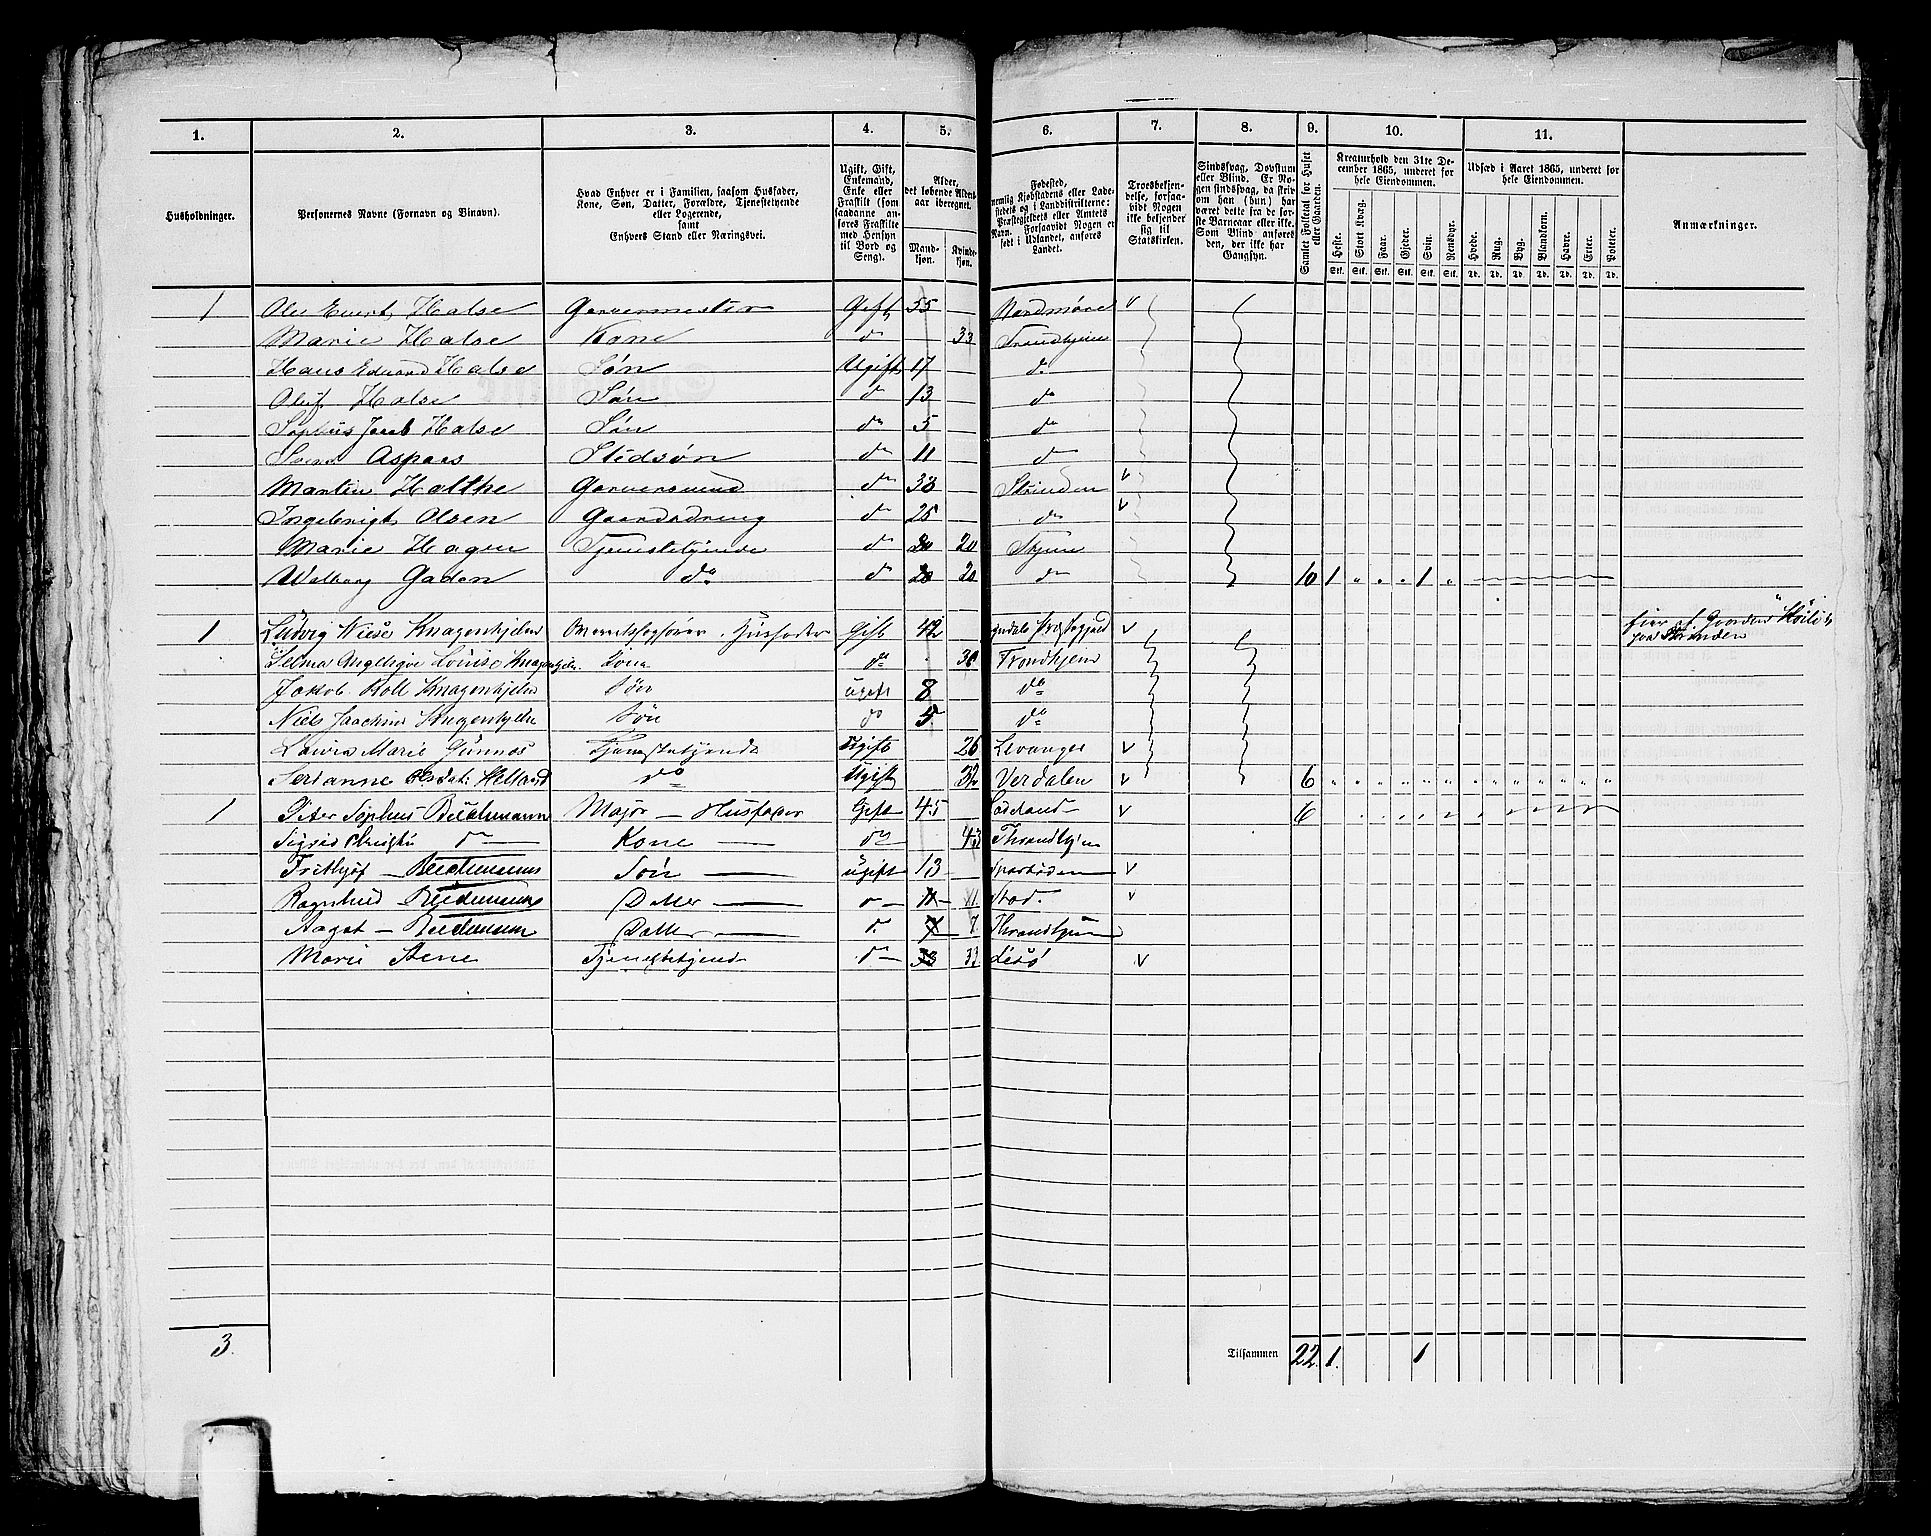 1. 2. 3. 4. 5. 6. 7. 8. 9. 10. 11.
Husholdninger.
Personernes Navne (Fornavn og Binavn).
Hvad Enhver er i Familien, saasom Husfader, Kone, Søn, Datter, Forældre, Tjenestetyende eller Logerende, samt Enhvers Stand eller Næringsvei.
Ugift, Gift, Enkemand, Enke eller Fraskilt (som saadanne anføres Fraskilte med Hensyn til Bord og Seng).
Alder, det løbende Alders- aar iberegnet.
Mand- kjøn. Kvinde- kjøn.
Fødested, nemlig Kjøbstadens eller Ladestedets og i Landdistrikterne: Præstegjeldets eller Amtets Navn. Forsaavidt Nogen er født i Udlandet, anføres Landet.
Troesbekjendelse, forsaavidt Nogen ikke bekjender sig til Statskirken.
Sindssvag, Døvstum eller Blind. Er Nogen sindssvag, da skrives om han (hun) har været dette fra de første Barneaar eller ikke. Som Blind anføres den, der ikke har Gangsyn.
Samlet Folketal for Huset eller Gaarden.
Kreaturhold den 31te December 1865, underet for hele Eiendommen.
Heste. Stort Kvæg. Faar. Gjeder. Svin. Rensdyr.
Udsæd i Aaret 1865, underet for hele Eiendommen.
Hvede. Rug. Byg. Blandkorn. Havre. Erter. Poteter.
Anmærkninger.
1 Ole Evert Halse Garvermester Gift 55 Nordmøre v
Marie Halse Kone do 33 Trondhjem
Hans Edvard Halse Søn Ugift 17 do
Oluf Halse Søn do 13 do
Sophus Jacob Halse Søn do 5 do
Aspaas Stedsøn do 11 do
Martin Holthe Garversvend do 38 Strinden v
Ingebrigt Olsen Gaardsdreng do 25 do v
Marie Hagen Tjenestetjende do 20 20
Gaden do do 20 20 do 10 1 1
1 Ludvig Knagenhjelm Husfader Gift 42 v
Selma Angelique Louise Knagenhjelm Kone do 30 Trondhjem
Jakob Roll Knagenhjelm Søn ugift 8 do
Niels Joachim Knagenhjelm Søn do 5 do
Laura Marie Tjenestetjende Ugift 26 Levanger v
Serianne Helland do Ugift 32 Verdalen v 6
1 Peter Sophus Major — Husfader Gift 45 v 6
Sigrid do Kone do 43 Throndhjem
Frithjof Søn ugift 13 v
Ragnhild Datter do 11 11 v
Aagot Datter do 7 7 Throndhjem
Marie Stene Tjenestetjende do 33 33 v
3. Tilsammen 22. 1. 1